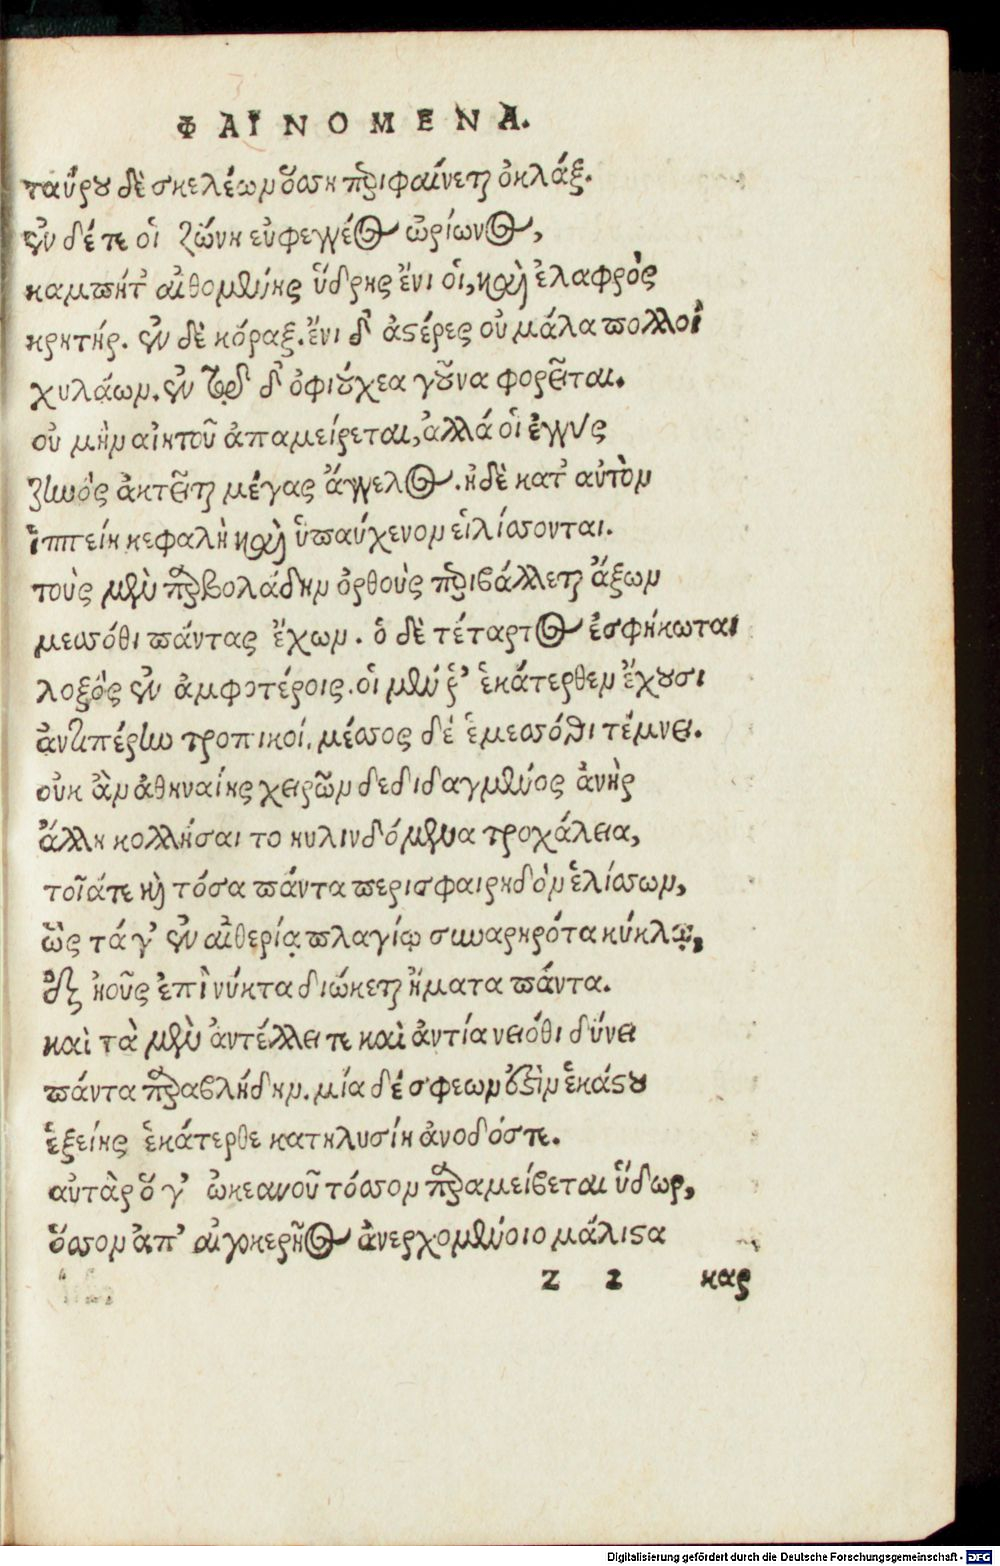 ΦΑΙΝΟΜΕΝΑ.
ταύρου δὲ σκελέων ὅσση περιφαίνεται ὀκλάξ.
ἐν δέ τε οἱ ζώνη εὐφεγγέος ὠρίωνος,
καμπήτ' αἰθομένης ὕδρης ἔνι οἱ, καὶ ἐλαφρὸς
κρητήρ. ἐν δὲ κόραξ. ἔνι δ' ἀστέρες οὐ μάλα πολλοὶ
χυλάων. ἐν τῷ δ' ὀφιούχεα γοῦνα φορεῖται.
οὐ μὴν αἰητοῦ ἀπαμείρεται, ἀλλά οἱ ἐγγὺς
ζωὸς ἀκτεῖται μέγας ἄγγελος. ἡ δὲ κατ' αὐτὸν
ἱππείη κεφαλὴ καὶ ὑπαύχενον εἱλίσσονται.
τοὺς μὲν παρβολάδην ὀρθοὺς περιβάλλεται ἄξων
μεσσόθι πάντας ἔχων. ὁ δὲ τέταρτος ἐσφήκωται
λοξὸς ἐν ἀμφοτέροις. οἱ μέν ῥ' ἑκάτερθεν ἔχουσι
ἀντιπέρω τροπικοί, μέσσος δέ ἑ μεσσόθι τέμνει.
οὐκ ἂν ἀθηναίης χειρῶν δεδιδαγμένος ἀνὴρ
ἄλλη κολλήσαιτο κυλινδόμενα τροχάλεια,
τοῖάτε καὶ τόσα πάντα περισφαιρηδὸν ἑλίσσων,
ὣς τά γ' ἐν αἰθερίᾳ πλαγίῳ συναρηρότα κύκλῳ,
ἐξ ἠοῦς ἐπὶ νύκτα διώκεται ἤματα πάντα.
καὶ τὰ μὲν ἀντέλλει τε καὶ ἀντία νειόθι δύνει
πάντα παραβλήδην. μία δέ σφεων ἐστὶν ἑκάστου
ἑξείης ἑκάτερθε κατηλυσίη ἀνοδόστε.
αὐτὰρ ὅ γ' ὠκεανοῦ τόσσον παραμείβεται ὕδωρ,
ὅσσον ἀπ' αἰγοκερῆος ἀνερχομένοιο μάλιστα
Z 2 καρ
Digitalisierung gefördert durch die Deutsche Forschungsgemeinschaft - DFG